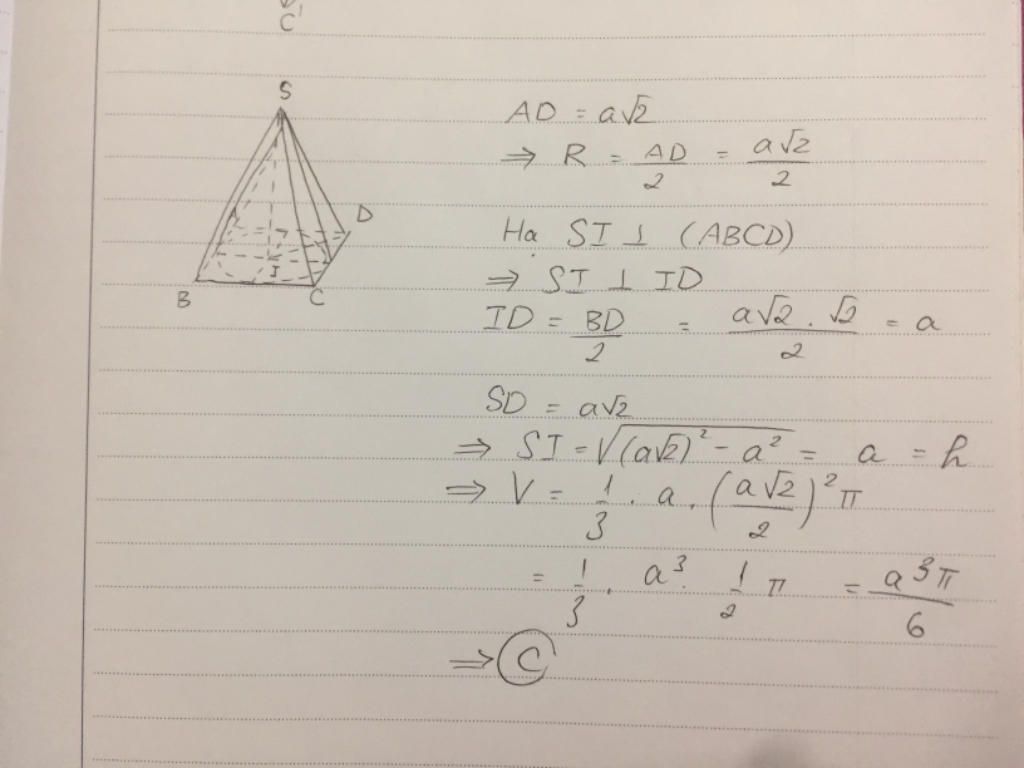 C'
S
A
D
I
B
C
AD = a√2
⇒ R = AD/2 = a√2/2
Hạ SI ⊥ (ABCD)
⇒ SI ⊥ ID
ID = BD/2 = a√2 . √2/2 = a
SD = a√2
⇒ SI = √((a√2)² - a²) = a = h
⇒ V = 1/3 . a . (a√2/2)² π
= 1/3 . a³ . 1/2 π = a³π/6
⇒ C